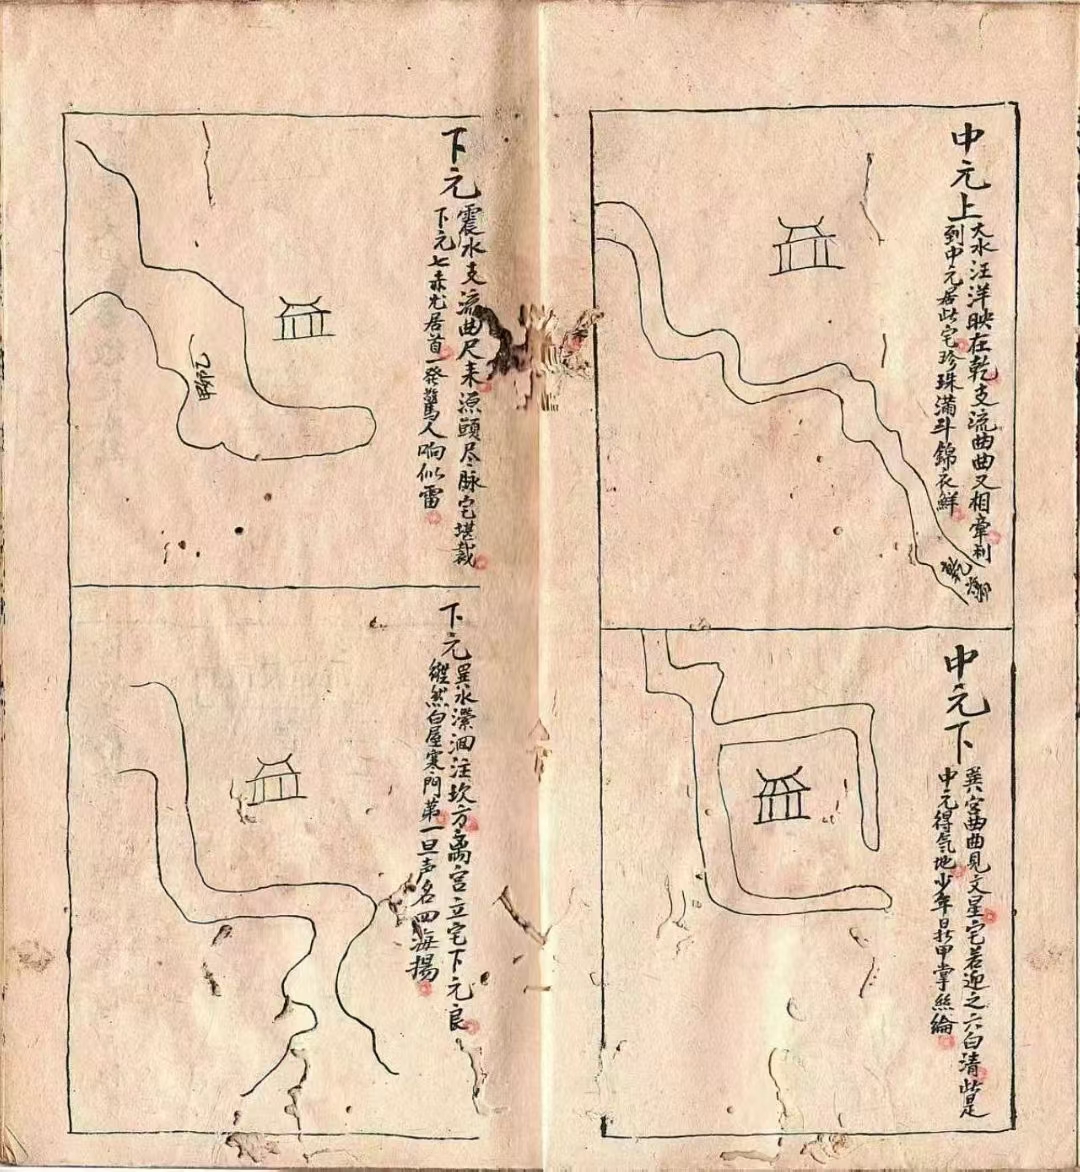 中元上
大水汪洋映在乾支流曲曲又相牽利
到中元居此宅珍珠滿斗錦衣鮮
乾
中元下
巽宮曲曲見文星宅若迎之六白清此是
中元得氣地少年甲掌絲綸
下元
震水支流曲尺来源頭尽脉宅堪裁
下元七赤尤居首一發驚人响似雷
下元
巽水瀠洄注坎方离宮立宅下元良
縱然白屋寒門第一旦声名四海揚